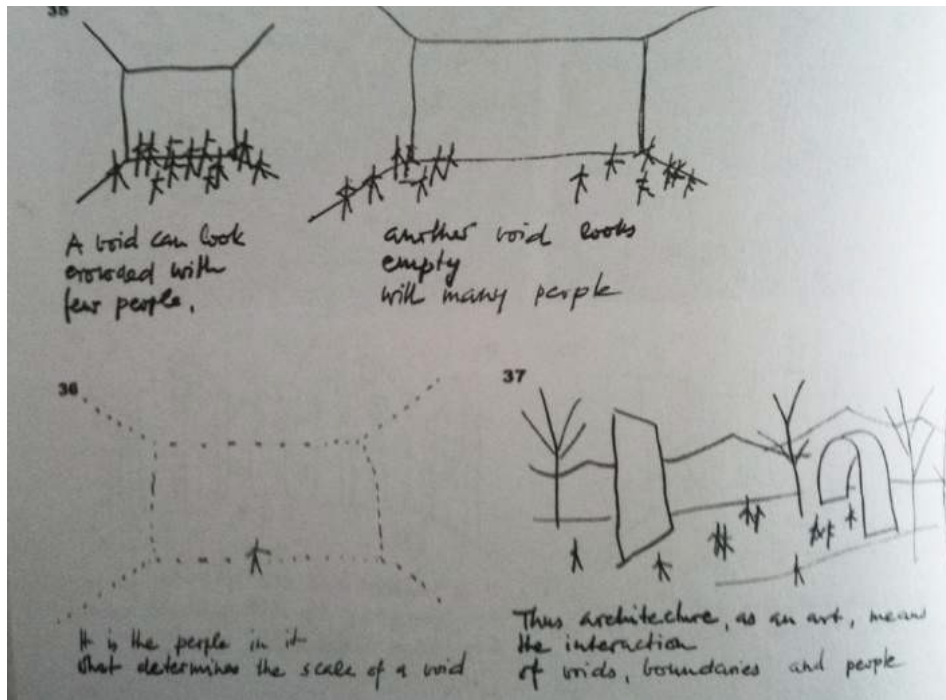 35
A void can look
crowded with
few people.
another void looks
empty
with many people
36
It is the people in it
that determines the scale of a void
37
Thus architecture, as an art, means
the interaction
of voids, boundaries and people